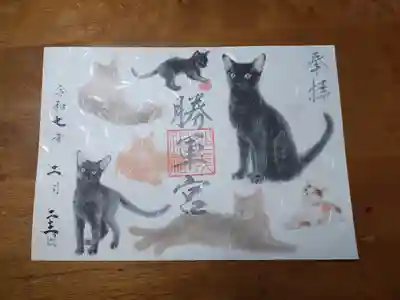 奉拝
勝軍宮
令和七年
二月
二十二日